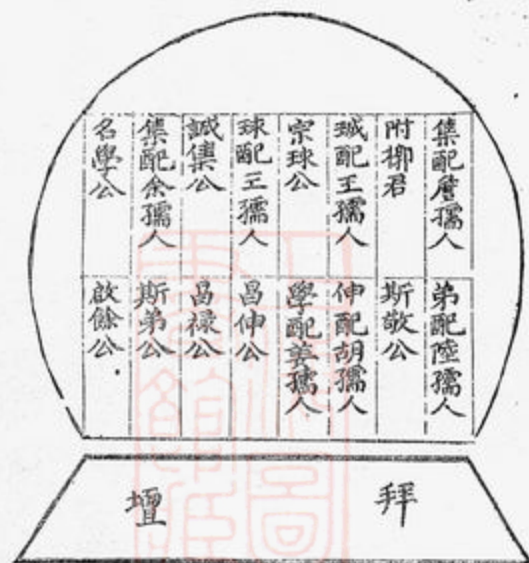 集配詹孺人
附挪君
珹配王孺人
宗球公
球配三孺人
誠集公
集配余孺人
名學公
弟配陸孺人
斯敬公
伸配胡孺人
學配姜孺人
昌伸公
昌禄公
斯弟公
啟餘公
拜壇